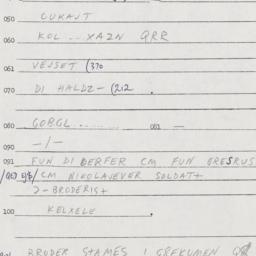 050 CUKAJT
060 KOL .. XAZN QRR
061 VEJSET (370
070 DI HALDZ- (212 .
080 GOBGL ........ 081 —
090 -/-
091 FUN DI DERFER CM FUN GRESRUS
CM NIKOLAJEVER SOLDAT+
2-BRODERIS+
100 KELXELE .
BRODER S+AMES I GREKUMEN